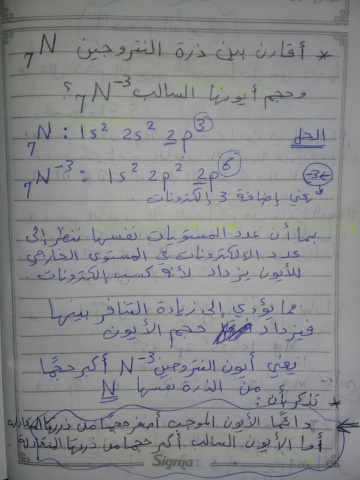 * أقارن بين ذرة النتروجين ₇N
وحجم أيونها السالب ₇N⁻³ ؟
الحل
₇N : 1s² 2s² 2p³
₇N⁻³ : 1s² 2p² 2p⁶
-3e
يعني إضافة 3 إلكترونات
بما أن عدد المستويات نفسها ننظر إلى
عدد الالكترونات في المستوى الخارجي
للأيون يزداد لأنه كسب إلكترونات
مما يؤدي إلى زيادة التنافر بينها
فيزداد حجم الأيون
يعني أيون النتروجين N⁻³ أكبر حجمًا
من الذرة نفسها N
* تذكر أن:
دائمًا الأيون الموجب أصغر حجمًا من ذرتها المتعادلة
أما الأيون السالب أكبر حجمًا من ذرتها المتعادلة
Sigma